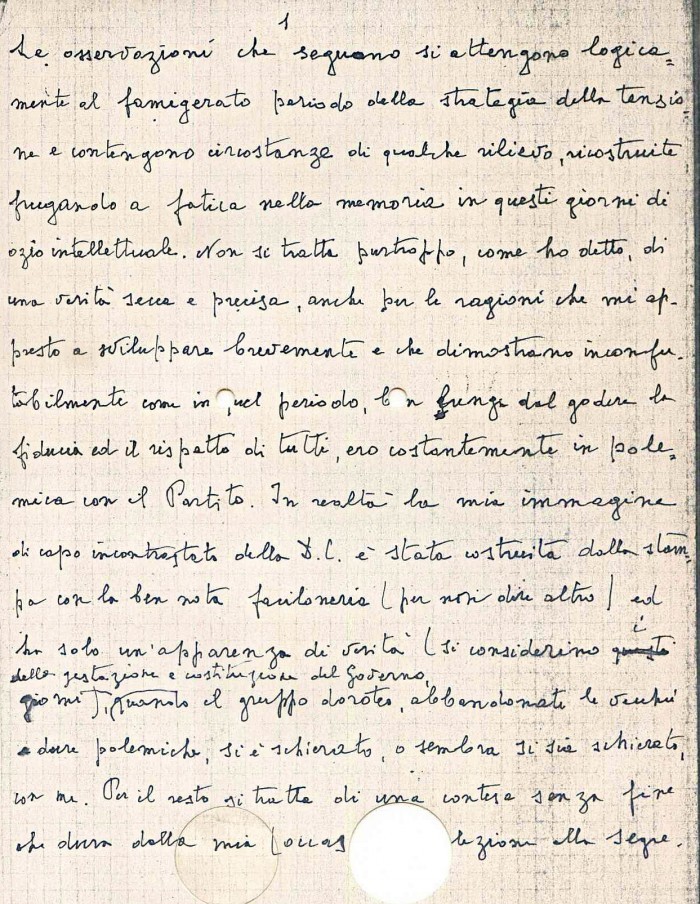 1
Le osservazioni che seguono si attengono logica=
mente al famigerato periodo della strategia della tensio=
ne e contengono circostanze di qualche rilievo, ricostruite
frugando a fatica nella memoria in questi giorni di
ozio intellettuale. Non si tratta purtroppo, come ho detto, di
una verità secca e precisa, anche per le ragioni che mi ap-
presto a sviluppare brevemente e che dimostrano inconfu-
tabilmente come in uel periodo, b n lungi dal godere la
fiducia ed il rispetto di tutti, ero costantemente in pole=
mica con il Partito. In realtà la mia immagine
di capo incontrastato della D.C. è stata costruita dalla stam=
pa con la ben nota faciloneria (per non dire altro) ed
ha solo un'apparenza di verità (si considerino i
della gestazione e costituzione del Governo,
giorni), quando il gruppo doroteo, abbandonate le vecchie
dure polemiche, si è schierato, o sembra si sia schierato,
con me. Per il resto si tratta di una contesa senza fine
che dura dalla mia (occas lezione alla Segre-